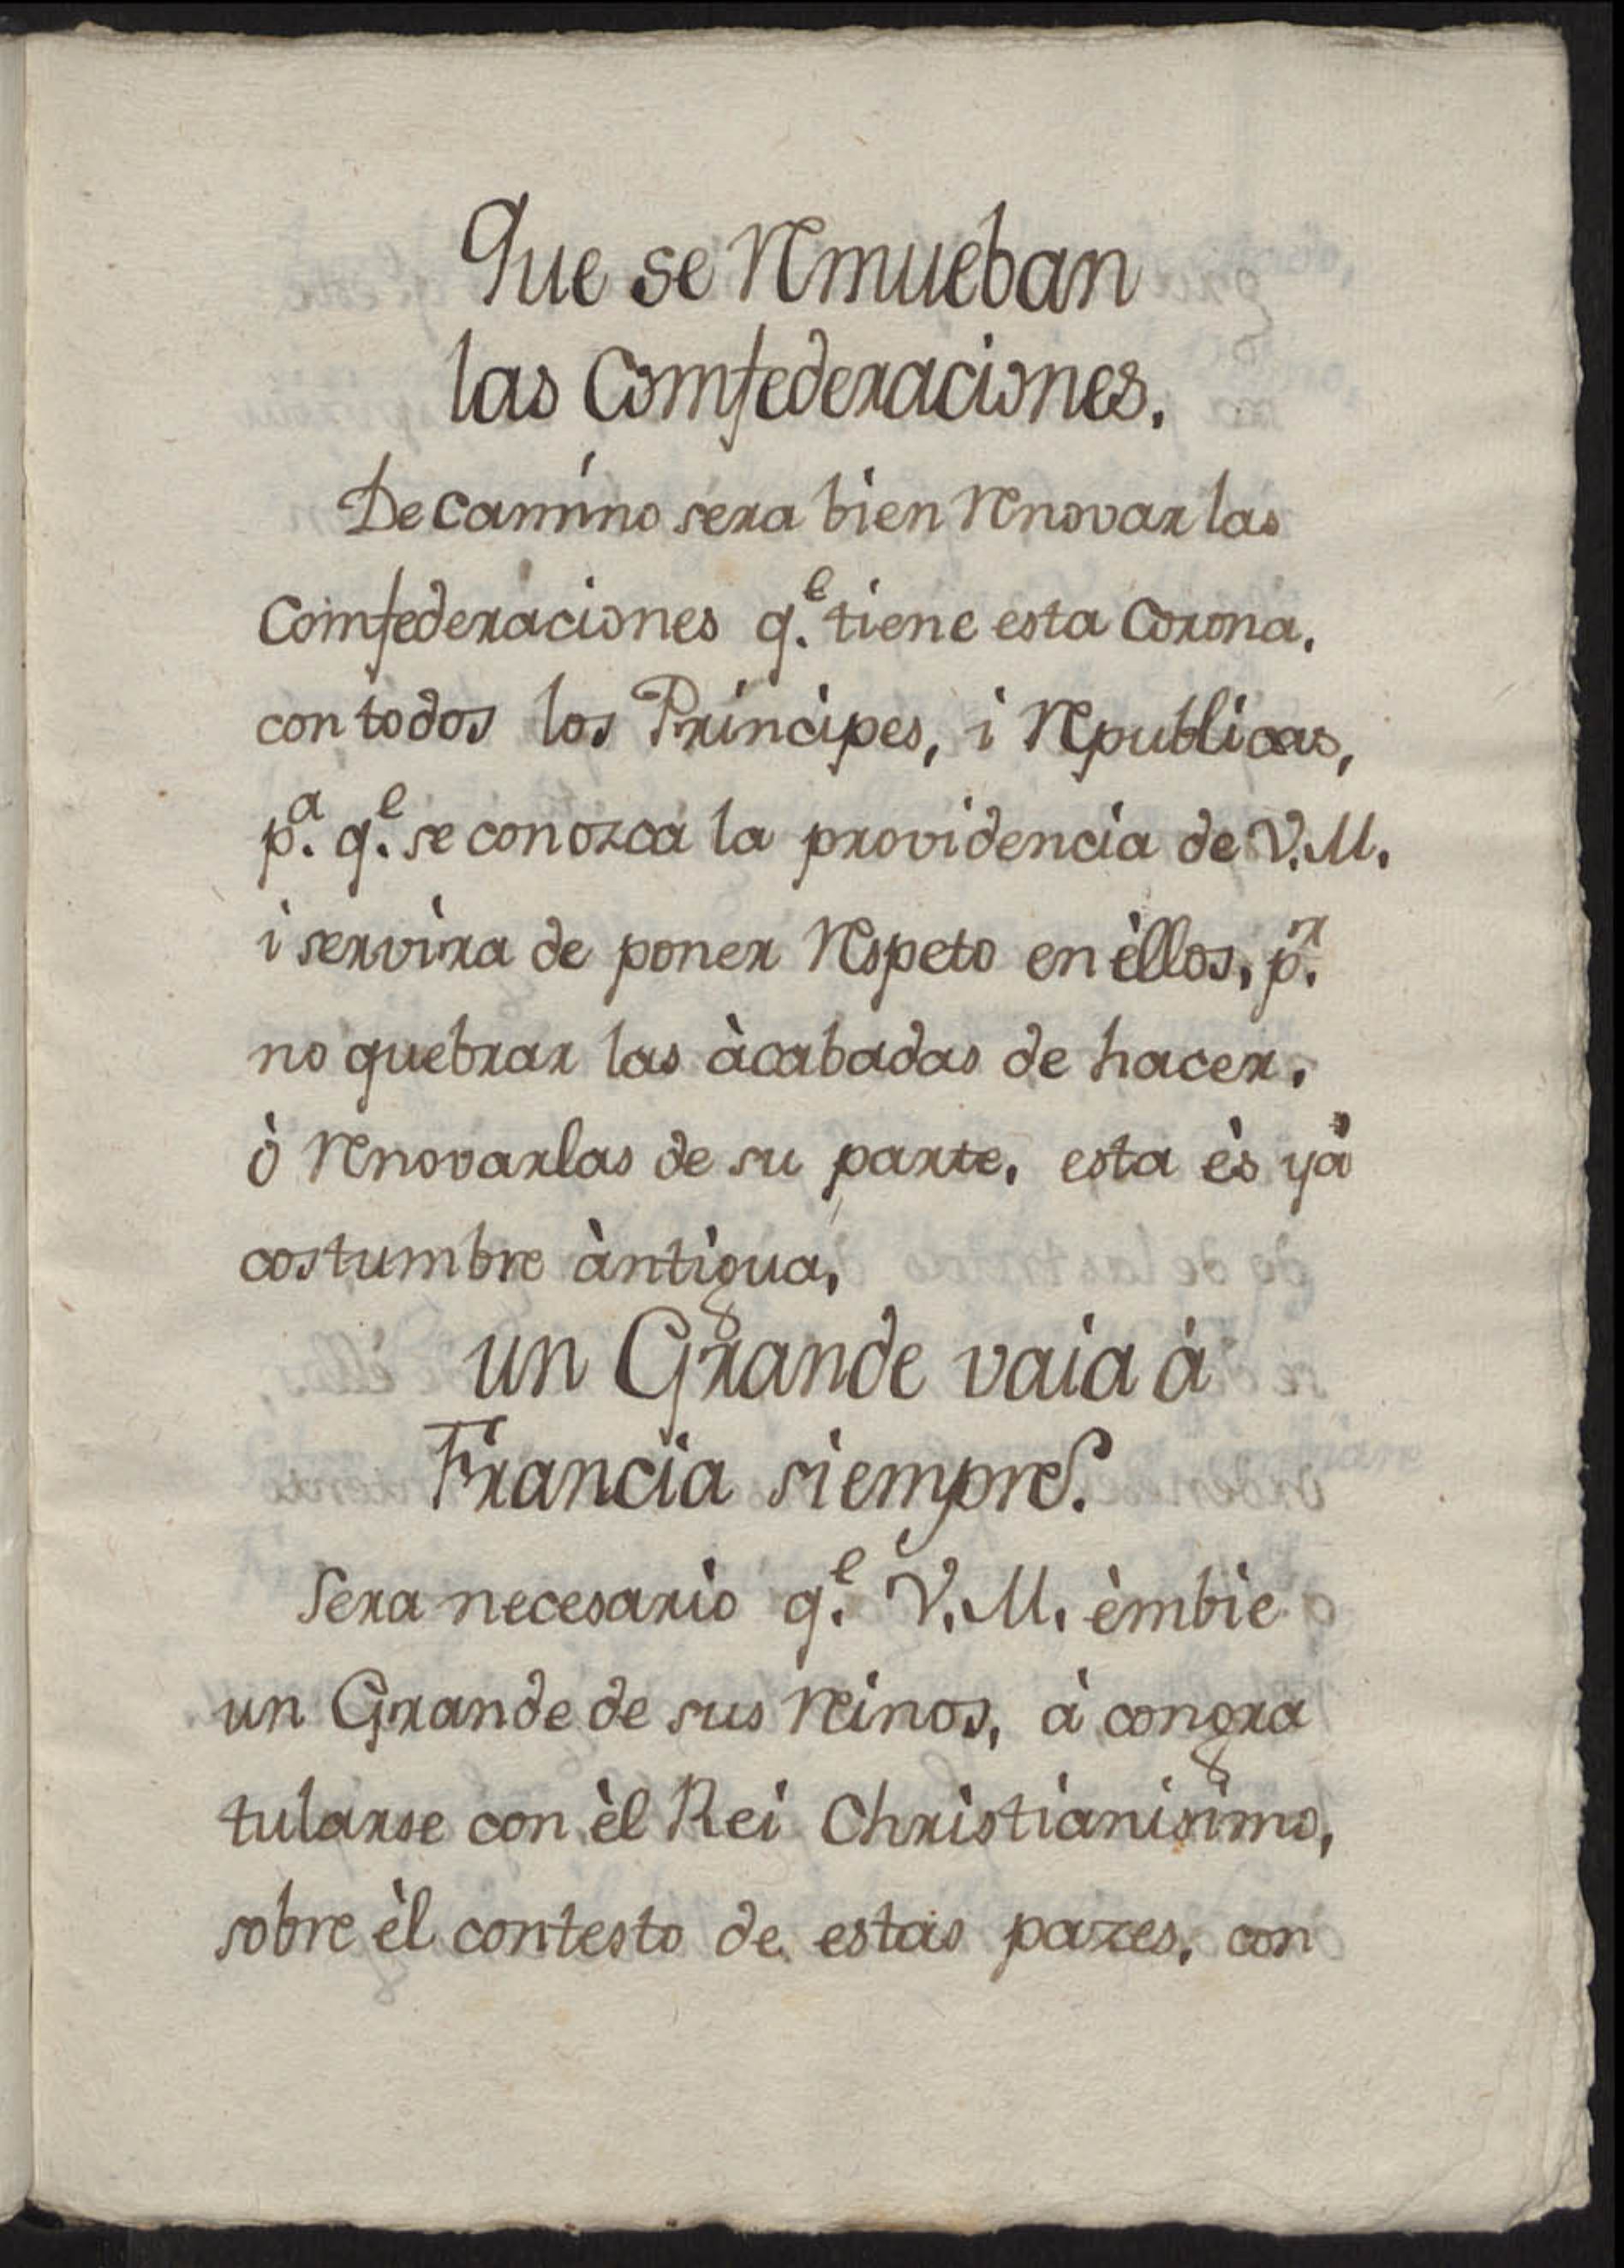 Que se remueban
las Comfederaciones.
De camino sera bien renovar las
Comfederaciones q.^e tiene esta Corona,
con todos los Principes, i Republicas,
p.^a q.^e se conozca la providencia de V.M.
i servira de poner respeto en èllos, p.^r
no quebrar las àcabadas de hacer,
ò renovarlas de su parte, esta ès yà
costumbre àntigua,
un Grande vaia à
Francia siempre.
Sera necesario q.^e V.M. èmbie
un Grande de sus reinos, à congra
tularse con èl Rei Christianisimo,
sobre èl contesto de estas pazes, con